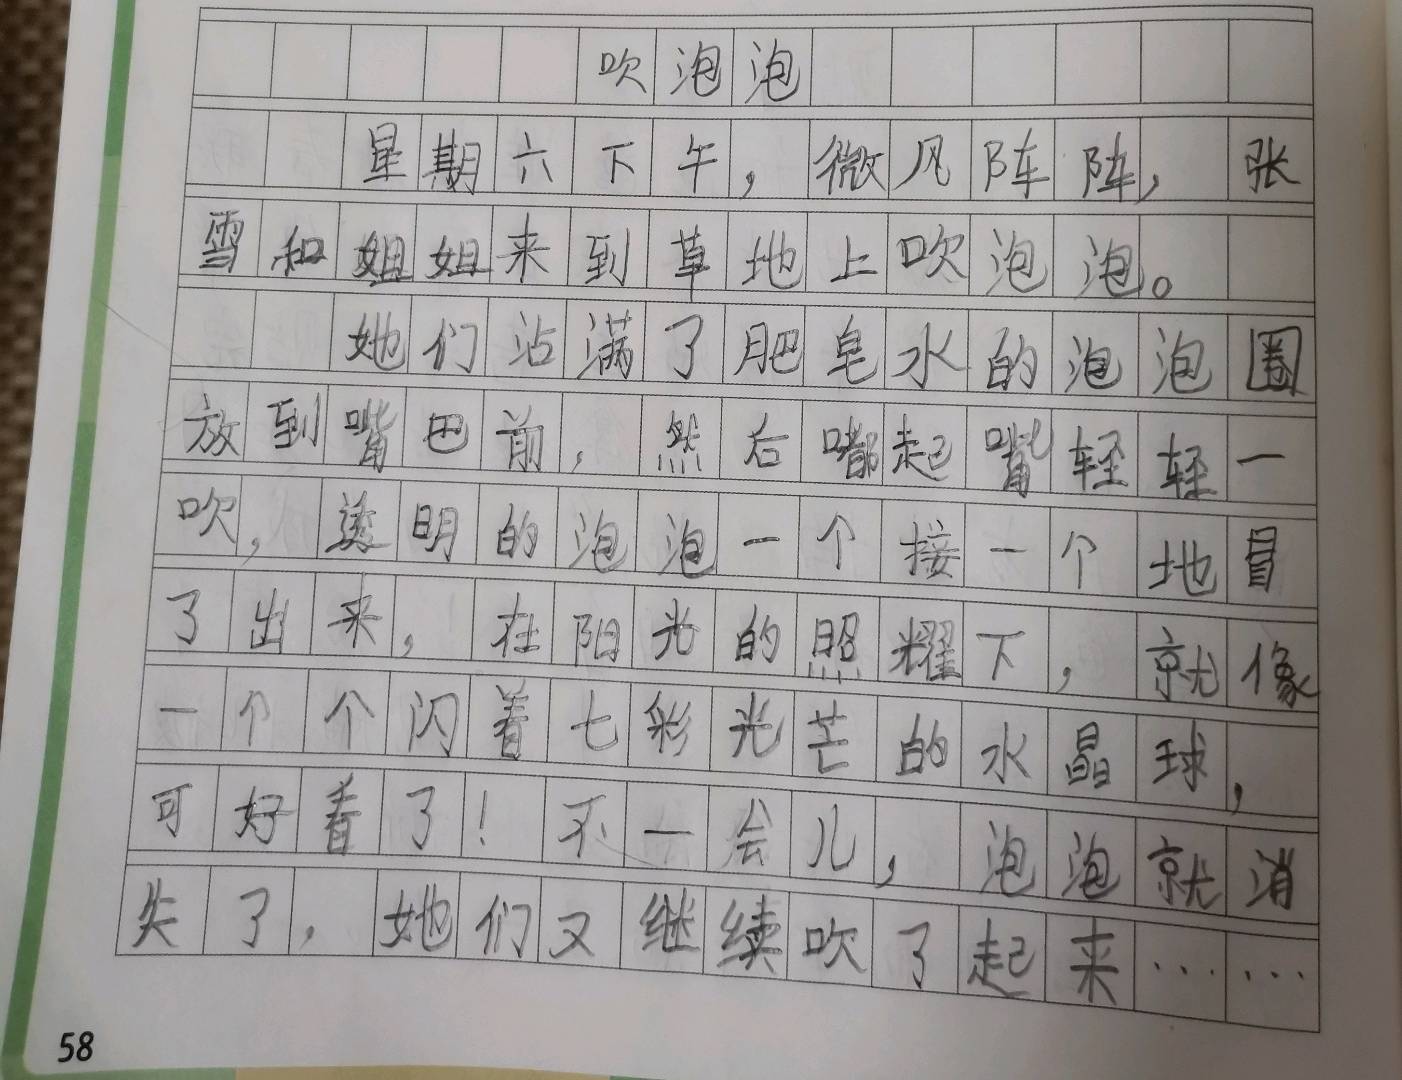 吹泡泡
星期六下午，微风阵阵，张
雪和姐姐来到草地上吹泡泡。
她们沾满了肥皂水的泡泡圈
放到嘴巴前，然后嘟起嘴轻轻一
吹，透明的泡泡一个接一个地冒
了出来，在阳光的照耀下，就像
一个个闪着七彩光芒的水晶球，
可好看了！不一会儿，泡泡就消
失了，她们又继续吹了起来……
58